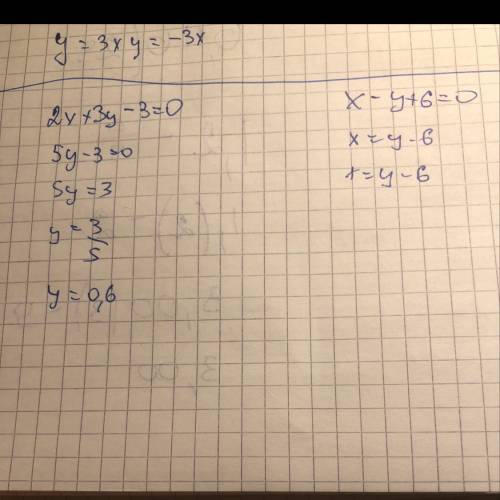 y = 3x y = -3x
2x+3y-3=0
5y-3=0
5y=3
y = 3/5
y = 0,6
x - y+6=0
x = y-6
x=y-6